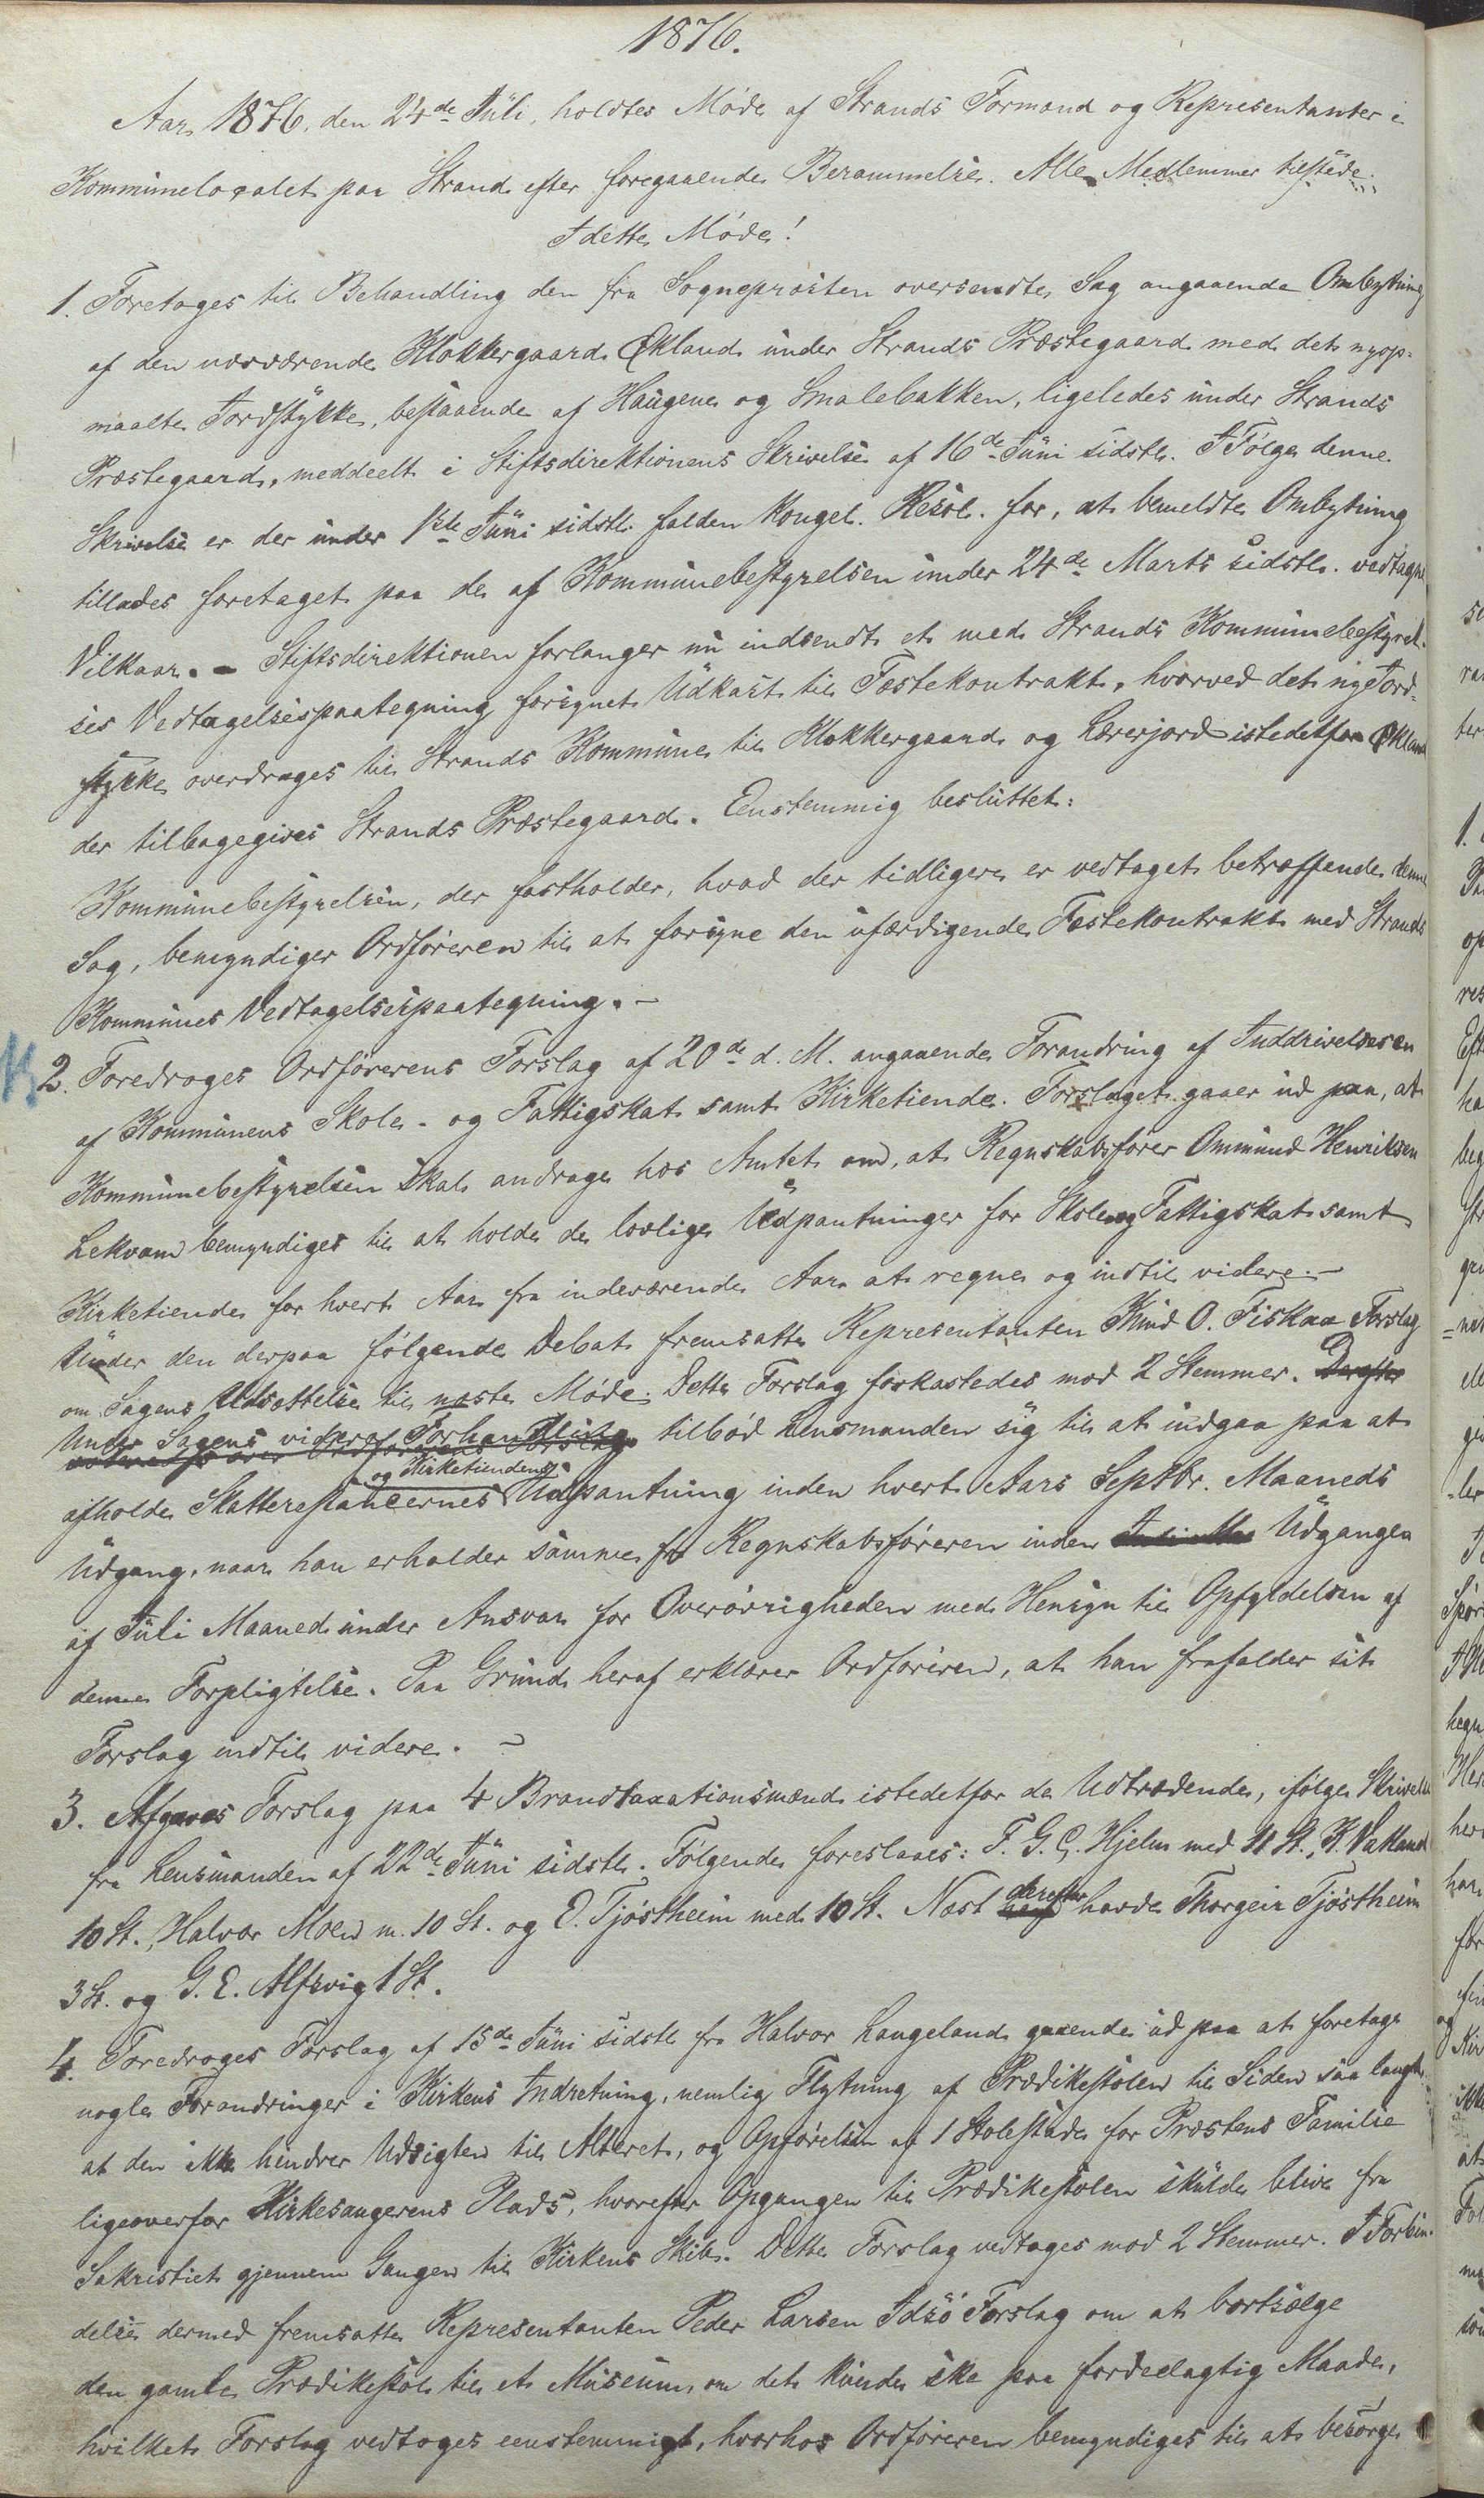 1876.
Aar 1876. den 24de Juli, holdtes Møde af Strands Formænd og Representanter i
Kommunelocalet paa Strand efter foregaaende Berammelse. Alle Medlemmer tilstede.
I dette Møde!
1. Foretoges til Behandling den fra Sognepræsten oversendte Sag angaaende Ombytning
af den nuværende Klokkergaard Økland under Strands Præstegaard med det nyop-
maalte Jordstykke, bestaaende af Haugene og Smalebakken, ligeledes under Strands
Præstegaard, meddeelt i Stiftsdirektionens Skrivelse af 16de Juni sidstl. I Følge denne
Skrivelse er der under 1ste Juni sidstl. falden Kongel. Resol. for, at bemeldte Ombytning
tillades foretaget paa de af Kommunebestyrelsen under 24de Marts sidstl. vedtagne
Vilkaar. - Stiftsdirektionen forlanger nu indsendt et med Strands Kommunebestyrel-
ses Vedtagelsespaategning forsynet Udkast til Festekontrakt, hvorved det nye Jord-
stykke overdrages til Strands Kommune til Klokkergaard og Lærerjord istedetfor Økland
der tilbagegives Strands Præstegaard. Eenstemmig besluttet:
Kommunebestyrelsen, der fastholder, hvad der tidligere er vedtaget betræffende denne
Sag, bemyndiger Ordføreren til at forsyne den ufærdigende Festekontrakt med Strands
Kommunes Vedtagelsespaategning. -
2. Foredroges Ordførerens Forslag af 20de d. M. angaaende Forandring af Inddrivelsen
af Kommunens Skole- og Fattigskat samt Kirketiende. Forslaget gaaer ud paa, at
Kommunebestyrelsen skal andrage hos Amtet om, at Regnskabsfører Ommund Henriksen
Lekvam bemyndiges til at holde de lovlige Udpantninger for Skole og Fattigskat samt
Kirketiende for hvert Aar fra indeværende Aar at regne og indtil videre. -
Under den derpaa følgende Debat fremsatte Representanten Knud O. Fiskaa Forslag
om Sagens Udsættelse til næste Møde. Dette Forslag forkastedes mod 2 Stemmer.
Under Sagens videre Forhandling tilbød Lensmanden sig til at indgaa paa at
og Kirketiendens
afholde Skatterestancernes Udpantning inden hvert Aars Septbr. Maaneds
Udgang, naar han erholder samme fra Regnskabsføreren inden Udgangen
af Juli Maaned under Ansvar for Overøvrigheden med Hensyn til Opfyldelsen af
denne Forpligtelse. Paa Grund heraf erklærer Ordføreren, at han frafalder sit
Forslag indtil videre. -
3. Afgaves Forslag paa 4 Brandtaxationsmænd istedetfor de Udtrædende, ifølge Skrivelse
fra Lensmanden af 22de Juni sidstl. Følgende foreslaaes: F. G. C. Hjelm med 11 St., K. Vatland
10 St., Halvor Moen m. 10 St. og O. Tjøstheim med 10 St. Næst derefter havde Thorgeir Tjøstheim
3 St. og G. E. Alfsvig 1 St.
4. Foredroges Forslag af 15de Juni sidstl fra Halvor Langeland gaaende ud paa at foretage
nogle Forandringer i Kirkens Indretning, nemlig Flytning af Prædikestolen til Siden saa langt
at den ikke hindrer Udsigten til Alteret, og Opførelsen af 1 Stolestade for Præstens Familie
ligeoverfor Kirkesangerens Plads, hvorefter Opgangen til Prædikestolen skulde blive fra
Sakristiet gjennem Gangen til Kirkens Skib. Dette Forslag vedtages mod 2 Stemmer. I Forbin-
delse dermed fremsatte Representanten Peder Larsen Idsø Forslag om at bortsælge
den gamle Prædikestol til et Museum, om det kunde ske paa fordeelagtig Maade,
hvilket Forslag vedtoges eenstemmigt, hvorhos Ordføreren bemyndiges til at besørge